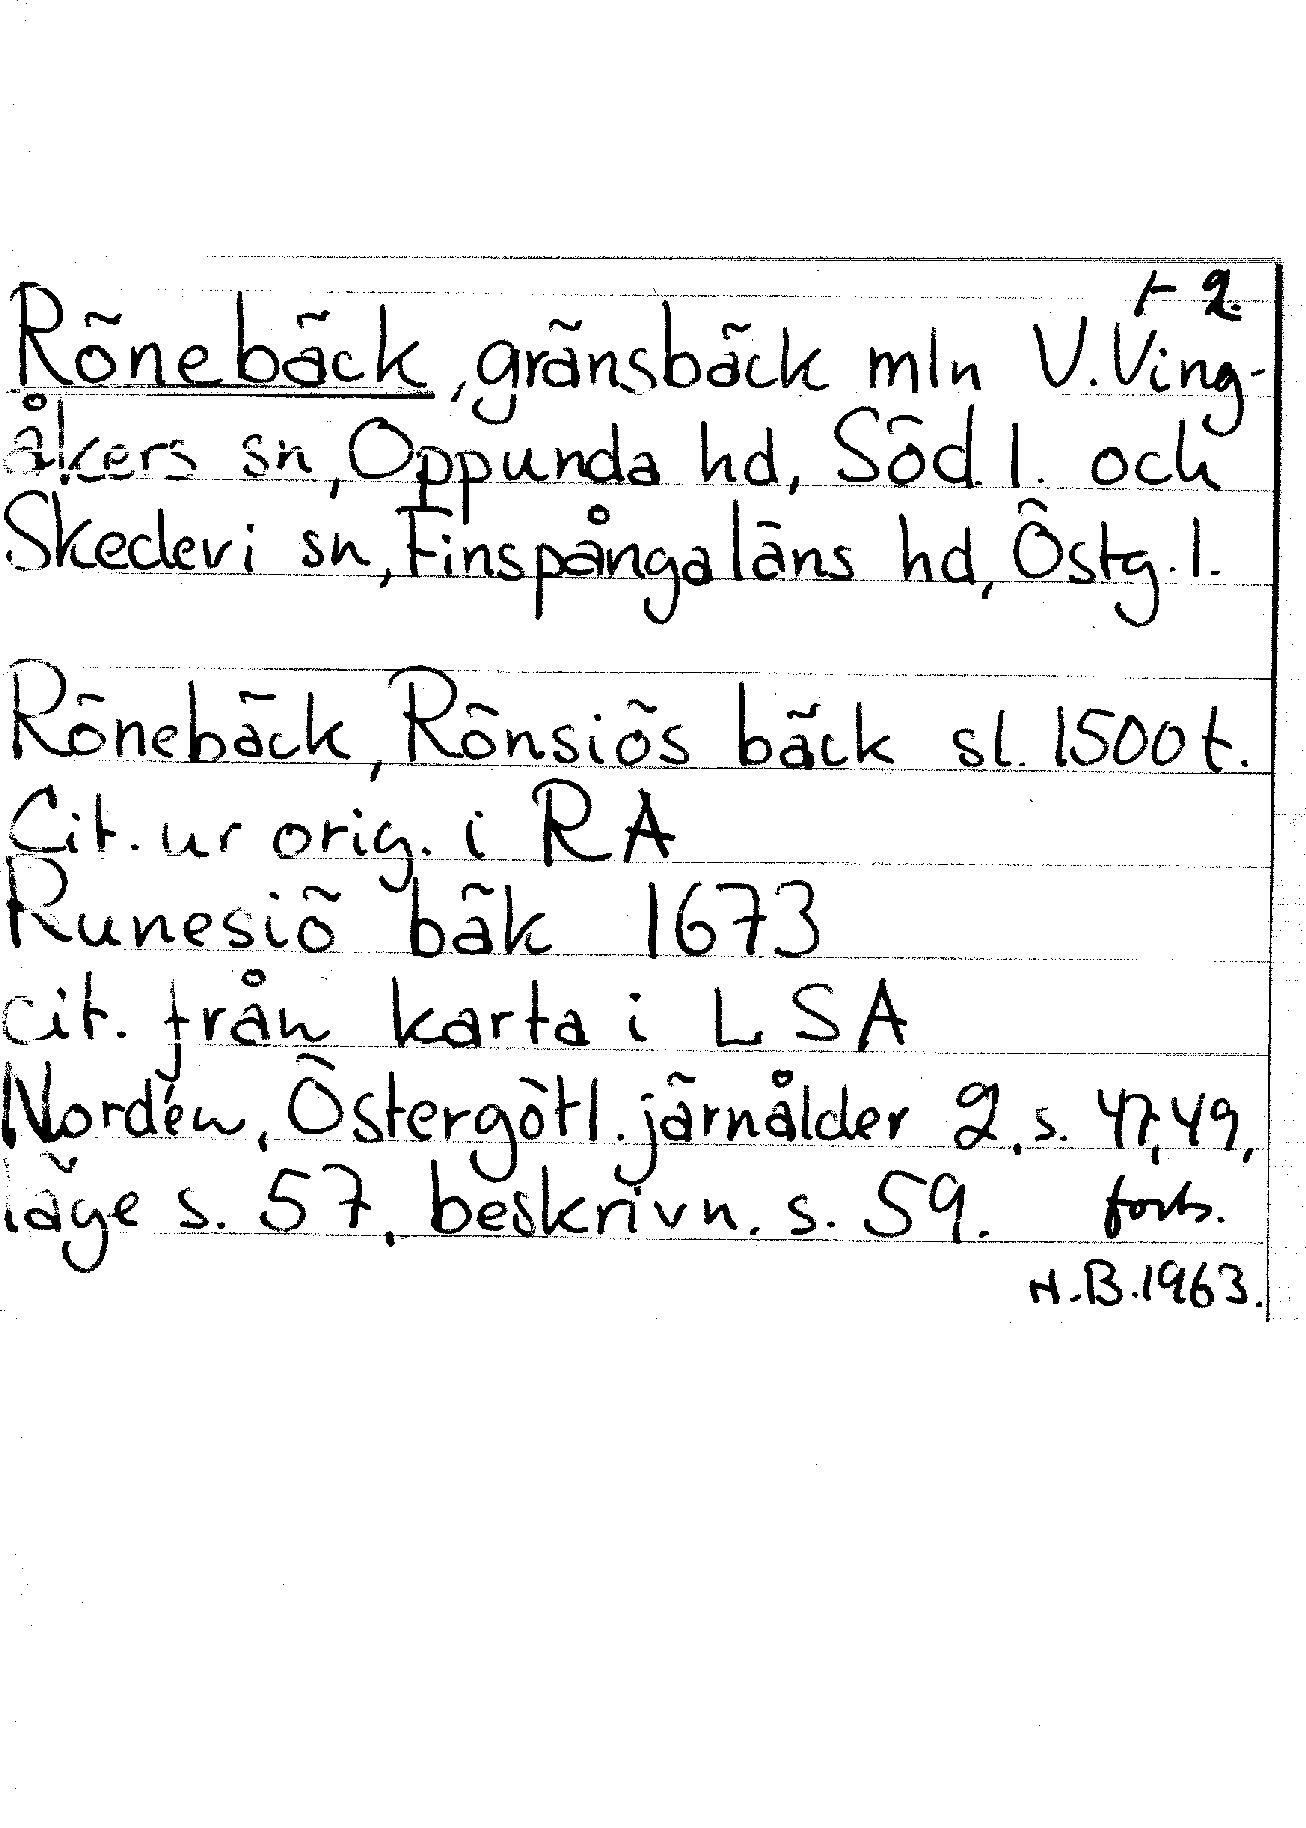 1-2.
Rönebäck, gränsbäck mln V. Ving-
åkers sn, Oppunda hd, Söd. l. och
Skedevi sn, Finspångaläns hd, Östg. l.
Rönebäck, Rönsiös bäck sl. 1500 t.
Cit. ur orig. i RA
Runesiö bäk 1673
cit. från karta i LSA
Nordén, Östergötl. järnålder 2, s. 47, 49,
läge s. 57, beskrivn. s. 59. forts.
H.B. 1963.